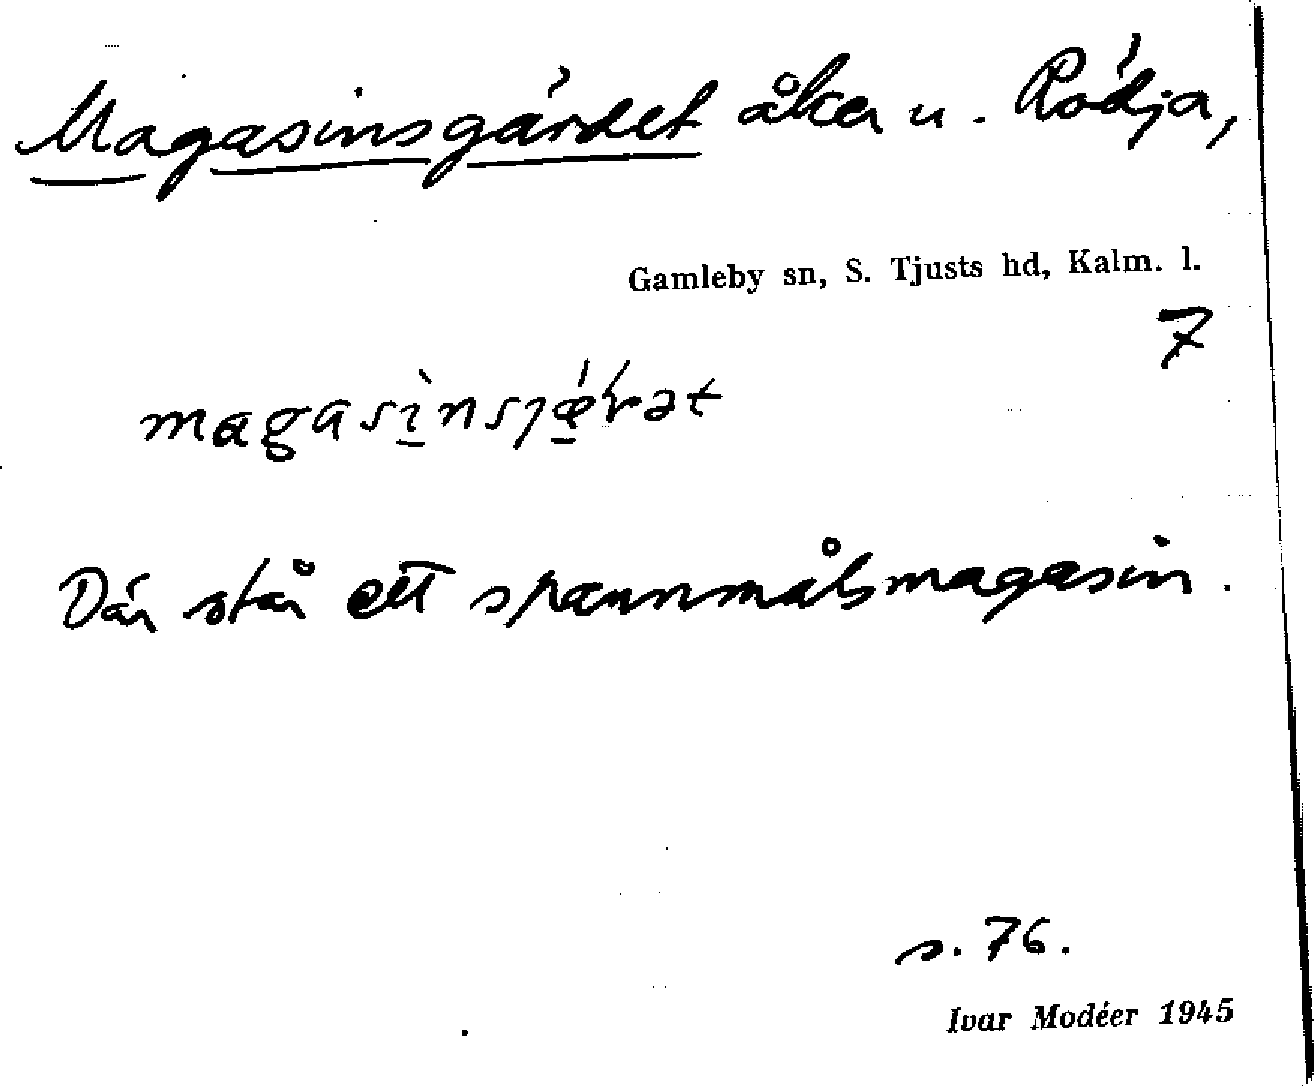 Magasinsgärdet åker u. Rödja,
Gamleby sn, S. Tjusts hd, Kalm. l.
7
Där står ett spannmålsmagasin.
s. 76.
Ivar Modéer 1945